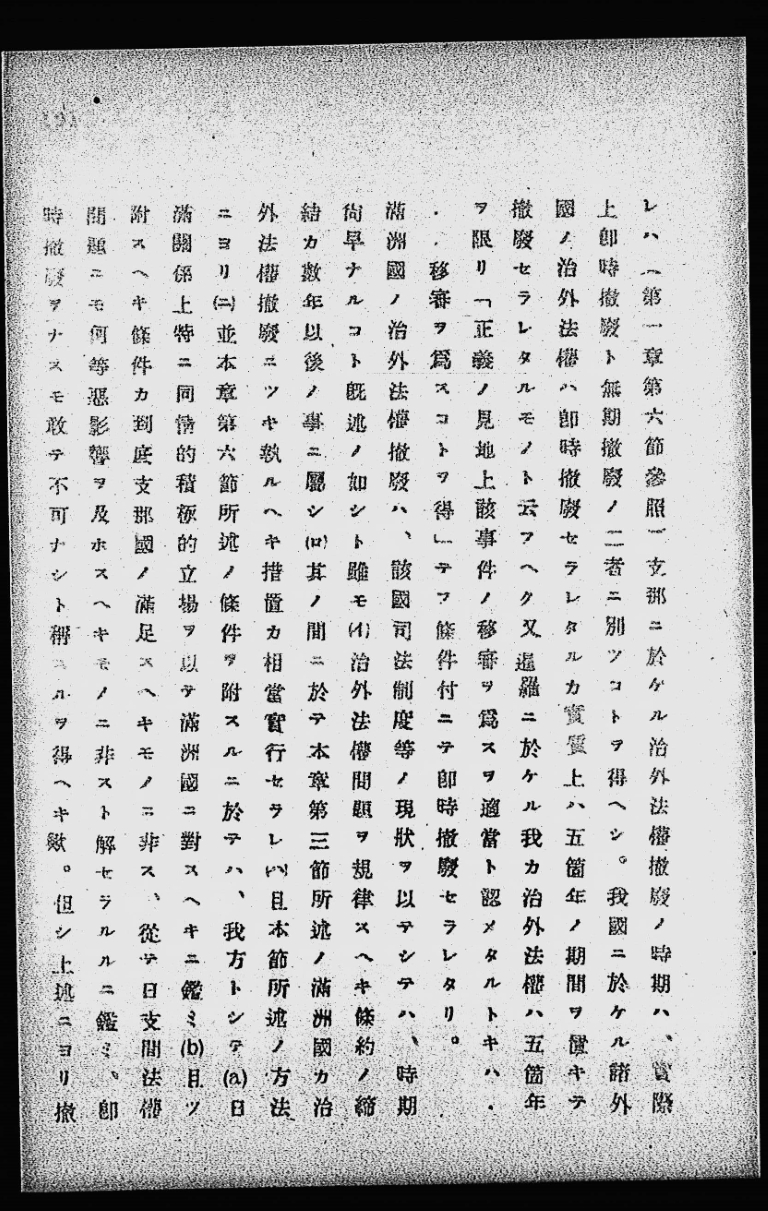 レハ(第一章第六節參照)支那ニ於ケル治外法權撤廢ノ時期ハ、實際
上卽時撤廢ト無期撤廢ノ二者ニ別ツコトヲ得ヘシ。我國ニ於ケル諸外
國ノ治外法權ハ卽時撤廢セラレタルカ實質上ハ五箇年ノ期間ヲ置キテ
撤廢セラレタルモノト云フヘク又暹羅ニ於ケル我カ治外法權ハ五箇年
ヲ限リ「正義ノ見地上該事件ノ移審ヲ爲スヲ適當ト認メタルトキハ・
・・移審ヲ爲スコトヲ得」テフ條件付ニテ卽時撤廢セラレタリ。
滿洲國ノ治外法權撤廢ハ、該國司法制度等ノ現狀ヲ以テシテハ、時期
尙早ナルコト旣述ノ如シト雖モ(イ)治外法權問題ヲ規律スヘキ條約ノ締
結カ數年以後ノ事ニ屬シ(ロ)其ノ間ニ於テ本章第三節所述ノ滿洲國カ治
外法權撤廢ニツキ執ルヘキ措置カ相當實行セラレ(ハ)且本節所述ノ方法
ニヨリ(ニ)並本章第六節所述ノ條件ヲ附スルニ於テハ、我方トシテ(a)日
滿關係上特ニ同情的積極的立場ヲ以テ滿洲國ニ對スヘキニ鑑ミ(b)且ツ
附スヘキ條件カ到底支那國ノ滿足スヘキモノニ非ス、從テ日支間法權
問題ニモ何等惡影響ヲ及ホスヘキモノニ非スト解セラルルニ鑑ミ、卽
時撤廢ヲナスモ敢テ不可ナシト稱スルヲ得ヘキ歟。但シ上述ニヨリ撤